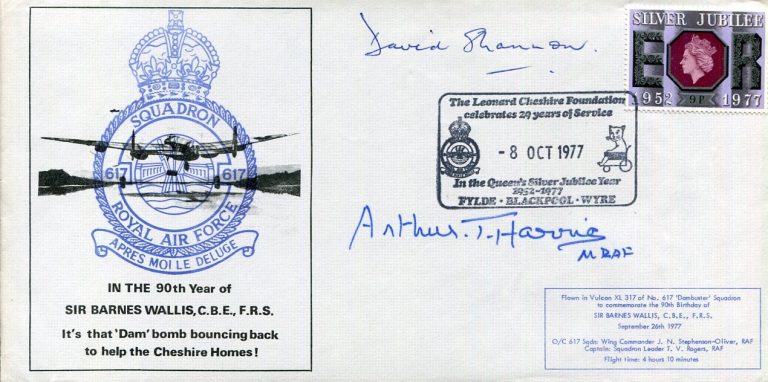 SQUADRON
617 617
ROYAL AIR FORCE
APRES MOI LE DELUGE
IN THE 90th Year of
SIR BARNES WALLIS, C.B.E., F.R.S.
It's that 'Dam' bomb bouncing back
to help the Cheshire Homes!
David Shannon.
SILVER JUBILEE
E R
1952 9P 1977
The Leonard Cheshire Foundation
celebrates 29 years of Service
- 8 OCT 1977
In the Queen's Silver Jubilee Year
1952-1977
FYLDE · BLACKPOOL · WYRE
Arthur. T. Harris
MRAF
Flown in Vulcan XL 317 of No. 617 'Dambuster' Squadron
to commemorate the 90th Birthday of
SIR BARNES WALLIS, C.B.E., F.R.S.
September 26th 1977
O/C 617 Sqdn: Wing Commander J. N. Stephenson-Oliver, RAF
Captain: Squadron Leader T. V. Rogers, RAF
Flight time: 4 hours 10 minutes